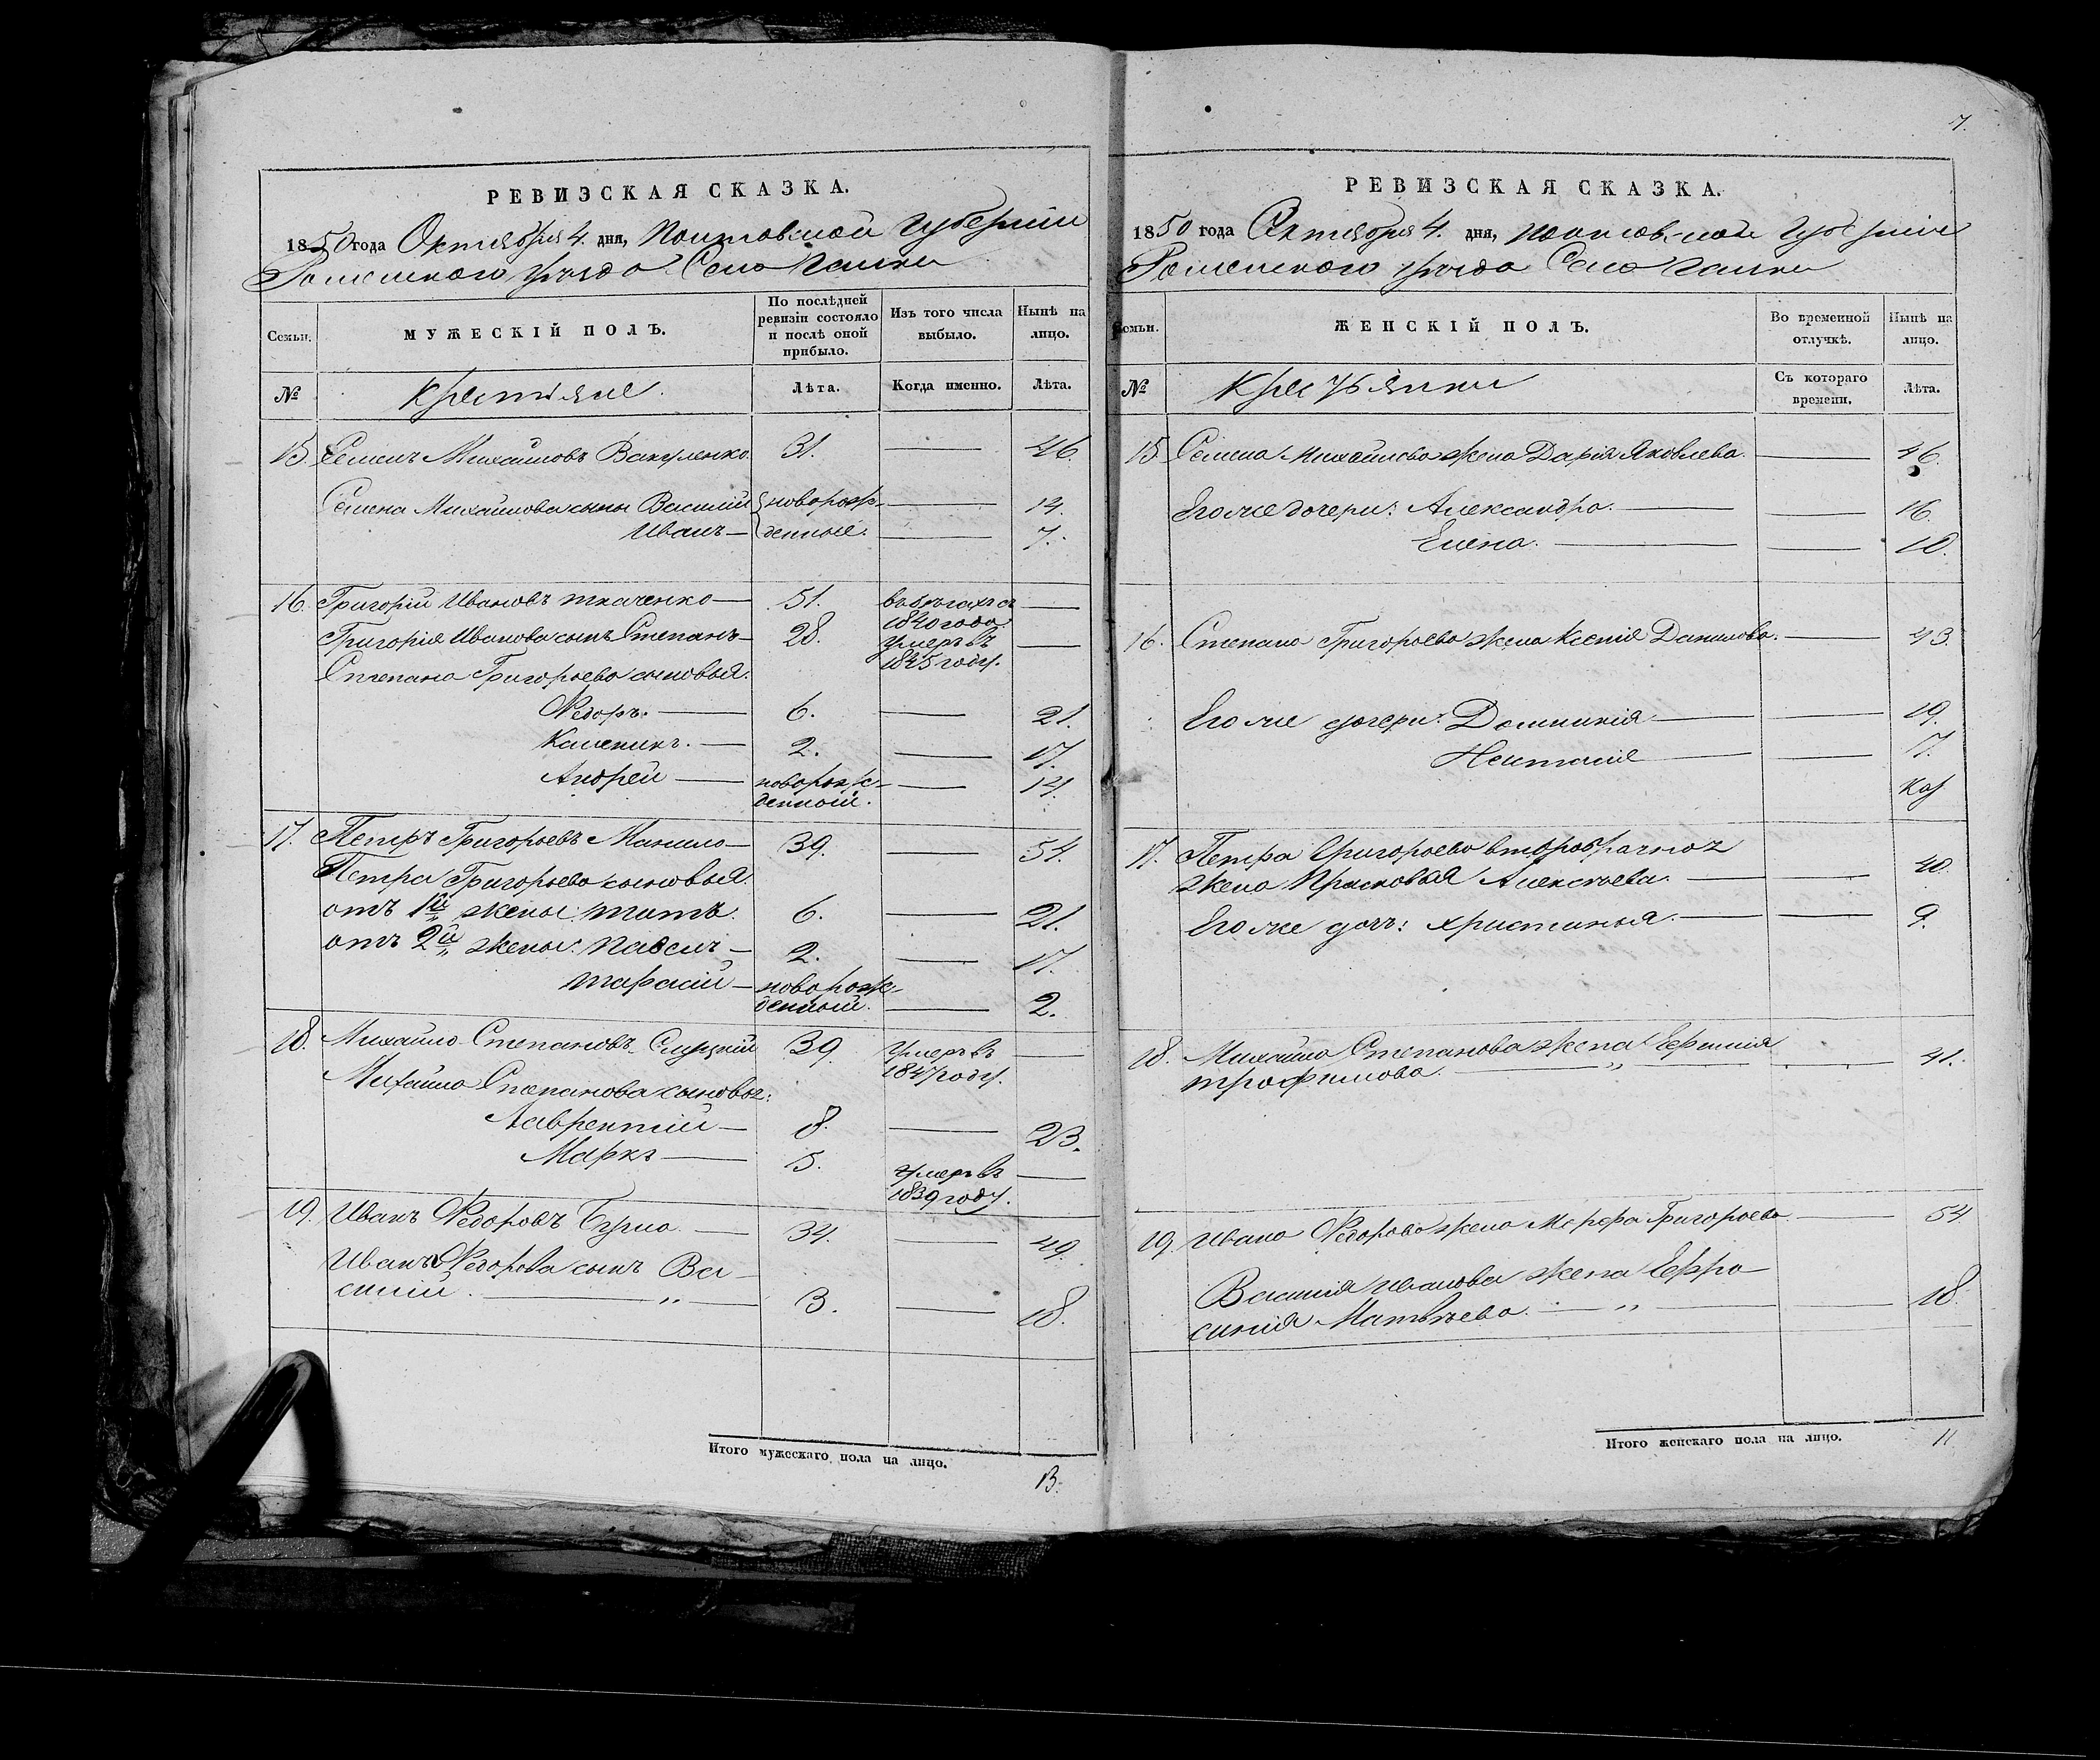 РЕВИЗСКАЯ СКАЗКА.
1850 года Октября 4. дня, Полтавской Губерніи
Роменского уѣзда Село Галки
Семьи. МУЖЕСКІЙ ПОЛЪ. По послѣдней ревизіи состояло и послѣ оной прибыло. Изъ того числа выбыло. Нынѣ на лицо.
№ Крестьяне. Лѣта. Когда именно. Лѣта.
15. Семенъ Михайловъ Вакуленко. 31. 46.
Семена Михайлова сыны Василій новорож- 14.
Иванъ денные. 7.
16. Григорій Ивановъ Ткаченко 51. въ бѣгахъ съ
1840 года
Григорія Иванова сынъ Степанъ 28. умеръ въ
1845 году.
Степана Григорьева сыновья.
Ѳедоръ. 6. 21.
Каленикъ. 2. 17.
Андрей новорож- 14.
денный.
17. Петръ Григорьевъ Манило 39. 54.
Петра Григорьева сыновья.
отъ 1й жены: Титъ. 6. 21.
отъ 2й жены: Павелъ 2. 17.
Тарасій новорож-
денный. 2.
18. Михайло Степановъ Слуцкій 39. умеръ въ
1847 году.
Михайла Степанова сыновья:
Лаврентій 8. 23.
Маркъ 15. умеръ въ
1839 году.
19. Иванъ Ѳедоровъ 34. 49.
Иванъ Ѳедорова сынъ Ва-
силій. „ 3. 18.
Итого мужескаго пола на лицо.
13.
7.
РЕВИЗСКАЯ СКАЗКА.
1850 года Октября 4. дня, Полтавской Губерніи
Роменского уѣзда Село Галки
Семьи. ЖЕНСКІЙ ПОЛЪ. Во временной отлучкѣ. Нынѣ на лицо.
№ Крестьянки Съ котораго времени. Лѣта.
15 Семена Михайлова жена Дарія Яковлева. 46.
Его же дочери: Александра. 16.
Елена. 10.
16. Степана Григорьева жена Ксенія Данилова. 43.
Его же дочери: Домникія 19.
17.
17. Петра Григорьева второбрачная
жена Прасковья Алексѣева. 40.
Его же дочь: Христинья. 9.
18. Михайла Степанова жена Ефимія
Трофимова. „ 41.
19. Ивана Ѳедорова жена Марфа Григорьева. 54
Василія Иванова жена Ефро-
синія Матвѣева. „ 18.
Итого женскаго пола на лицо. 11